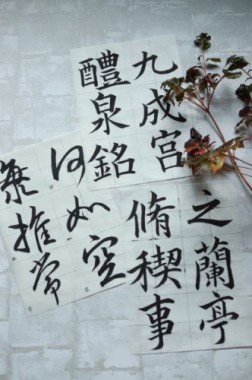 九成宮
醴泉銘
之蘭亭
脩稧事
何如空
海推常